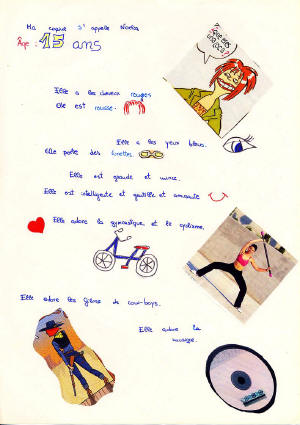 Ma copine s'appelle
Âge : 15 ans
Elle a les cheveux rouges
elle est rousse.
Elle a les yeux bleus.
elle porte des lunettes.
Elle est grande et mince.
Elle est intelligente et gentille et amusante
Elle adore la gymnastique et le cyclisme.
Elle adore les films de cow-boys.
Elle adore la
musique.